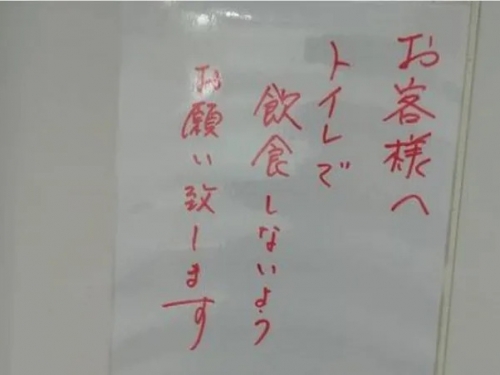 お客様へ
トイレで
飲食しないよう
お願い致します